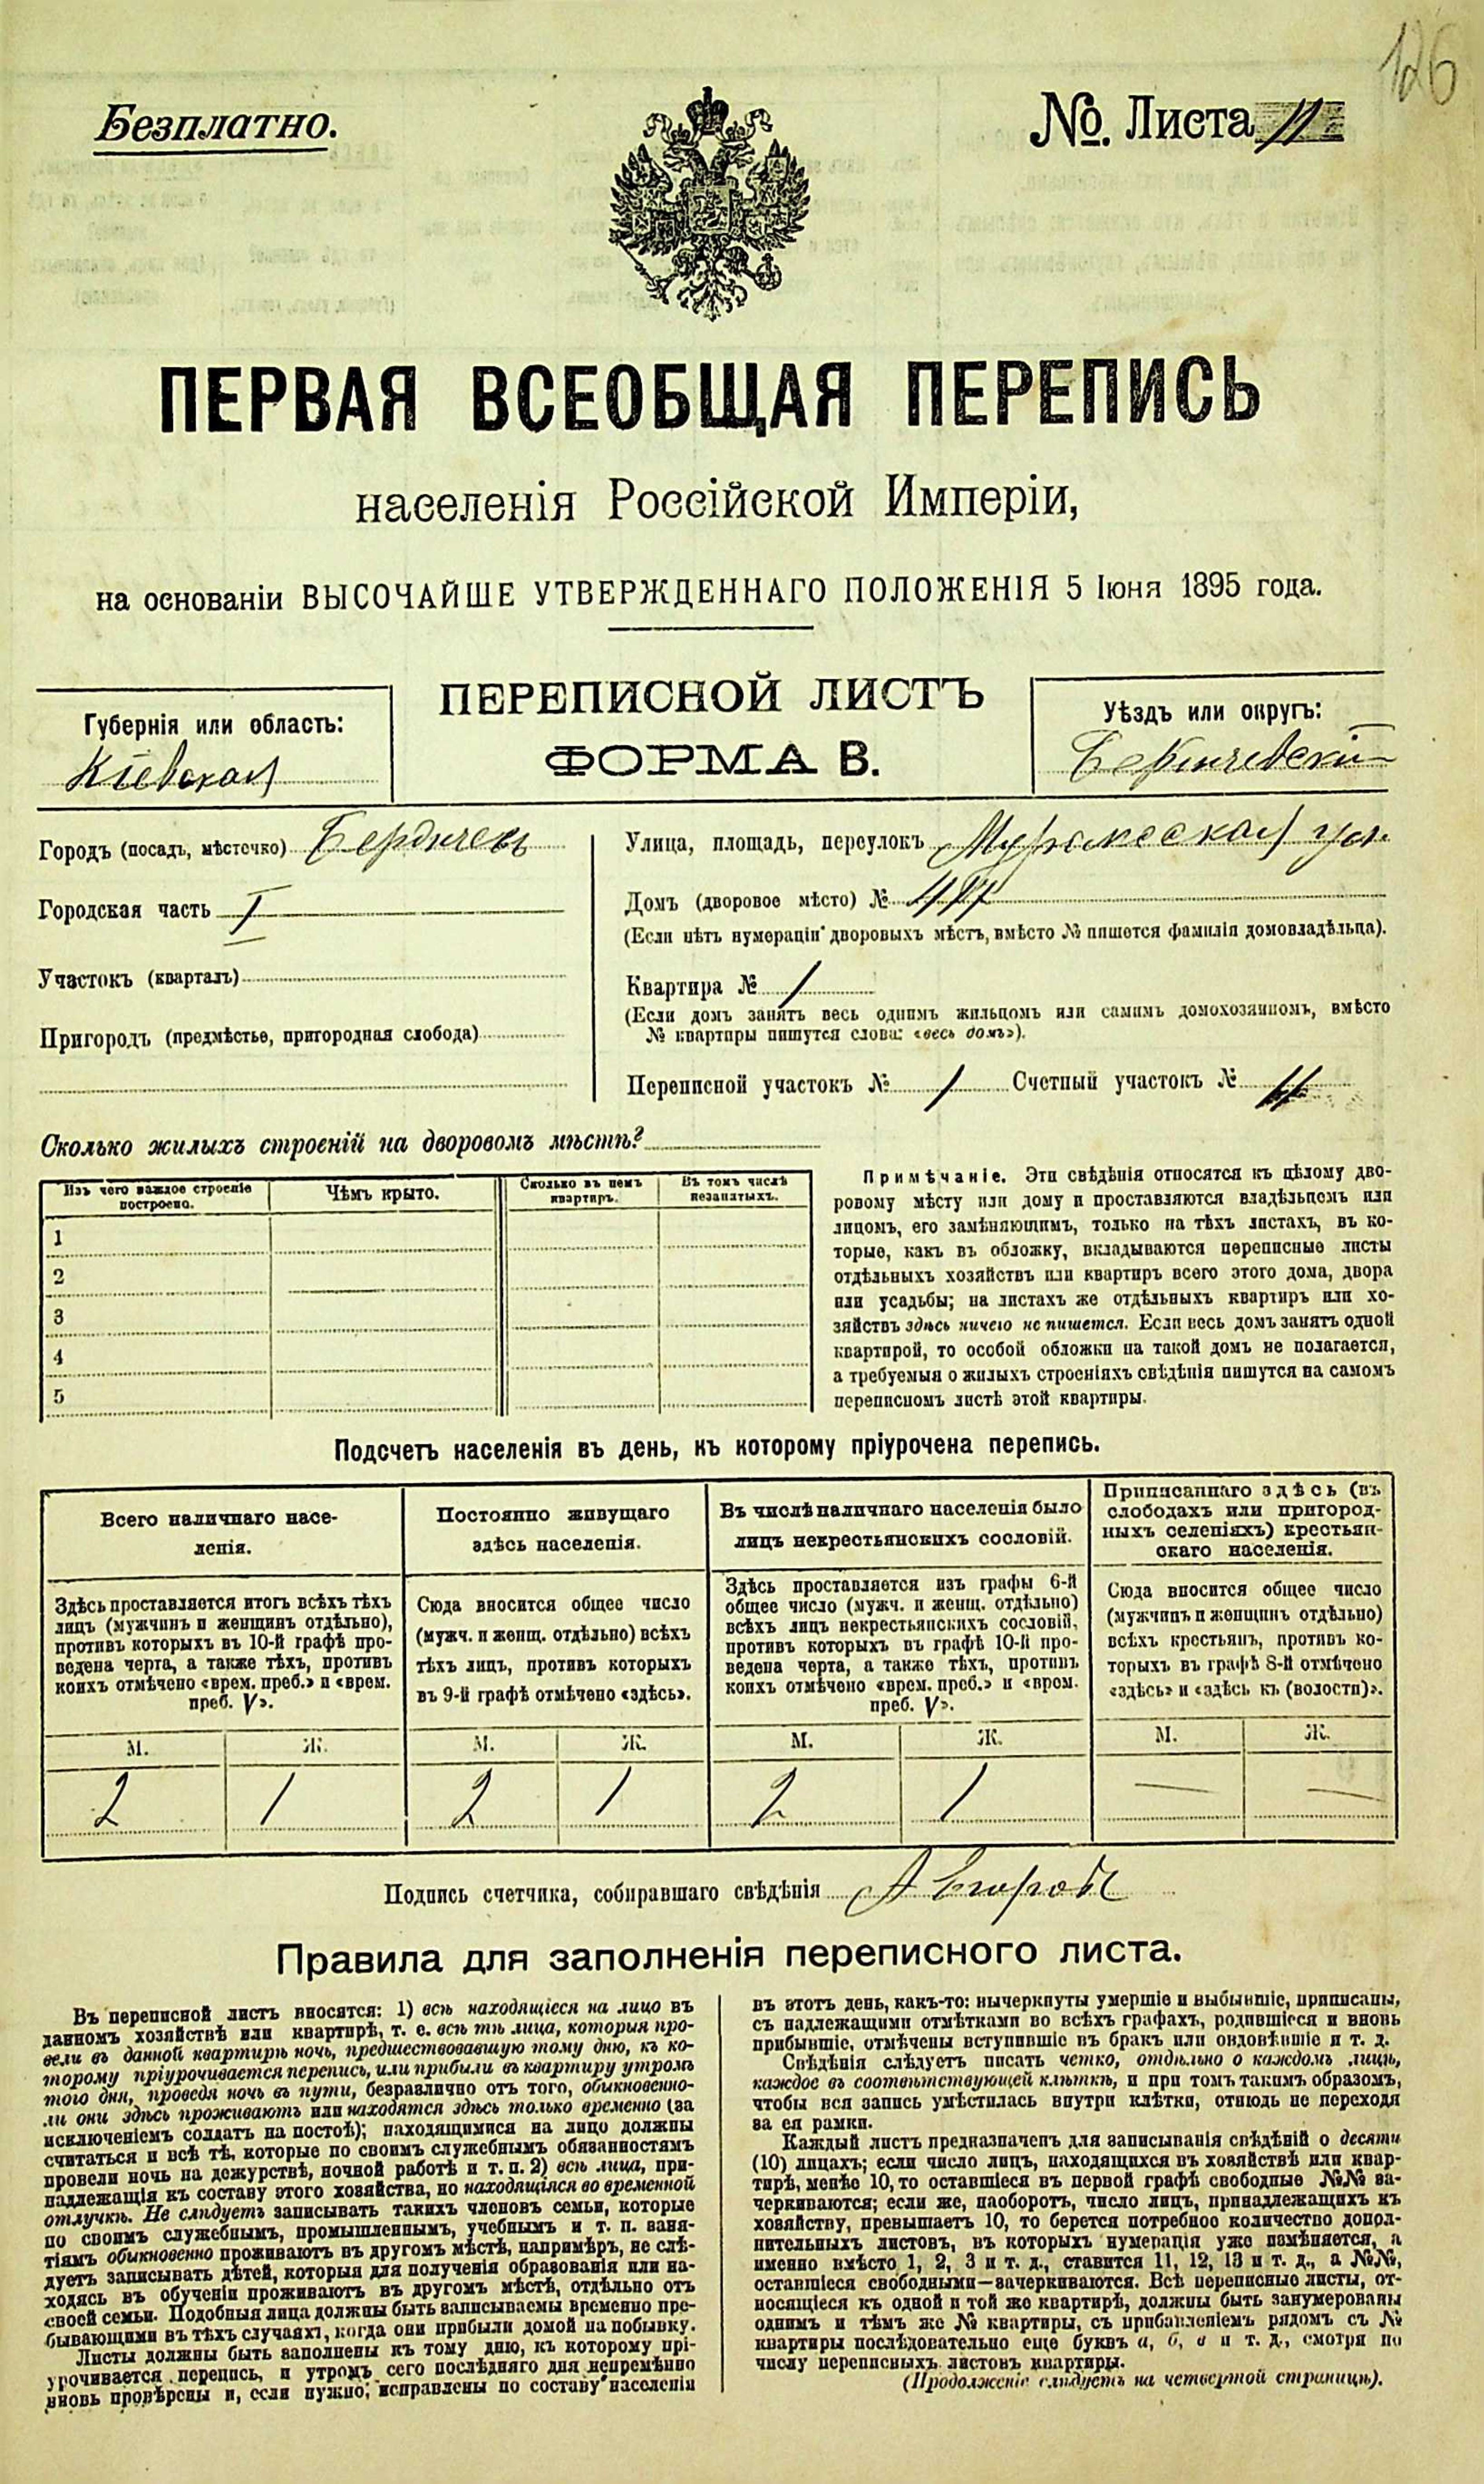 126
Безплатно.
№. Листа 11
ПЕРВАЯ ВСЕОБЩАЯ ПЕРЕПИСЬ
населенія Россійской Имперіи,
на основаніи ВЫСОЧАЙШЕ УТВЕРЖДЕННАГО ПОЛОЖЕНІЯ 5 Іюня 1895 года.
Губернія или область:
Кіевская
ПЕРЕПИСНОЙ ЛИСТЪ
ФОРМА В.
Уѣздъ или округъ:
Бердичевскій
Городъ (посадъ, мѣстечко) Бердичевъ
Городская часть I
Участокъ (кварталъ)
Пригородъ (предмѣстье, пригородная слобода)
Улица, площадь, переулокъ ул.
Домъ (дворовое мѣсто) №
(Если нѣтъ нумераціи дворовыхъ мѣстъ, вмѣсто № пишется фамилія домовладѣльца).
Квартира № 1
(Если домъ занятъ весь однимъ жильцомъ или самимъ домохозяиномъ, вмѣсто
№ квартиры пишутся слова: «весь домъ»).
Переписной участокъ № 1 Счетный участокъ № 11
Сколько жилыхъ строеній на дворовомъ мѣстѣ?
Изъ чего каждое строеніе
построено.
Чѣмъ крыто.
Сколько въ немъ
квартиръ.
Въ томъ числѣ
незанятыхъ.
1
2
3
4
5
Примѣчаніе. Эти свѣдѣнія относятся къ цѣлому дво-
ровому мѣсту или дому и проставляются владѣльцемъ или
лицомъ, его замѣняющимъ, только на тѣхъ листахъ, въ ко-
торые, какъ въ обложку, вкладываются переписные листы
отдѣльныхъ хозяйствъ или квартиръ всего этого дома, двора
или усадьбы; на листахъ же отдѣльныхъ квартиръ или хо-
зяйствъ здѣсь ничего не пишется. Если весь домъ занятъ одной
квартирой, то особой обложки на такой домъ не полагается,
а требуемыя о жилыхъ строеніяхъ свѣдѣнія пишутся на самомъ
переписномъ листѣ этой квартиры.
Подсчетъ населенія въ день, къ которому пріурочена перепись.
Всего наличнаго насе-
ленія.
Здѣсь проставляется итогъ всѣхъ тѣхъ
лицъ (мужчинъ и женщинъ отдѣльно),
противъ которыхъ въ 10-й графѣ про-
ведена черта, а также тѣхъ, противъ
коихъ отмѣчено «врем. преб.» и «врем.
преб. V».
Постоянно живущаго
здѣсь населенія.
Сюда вносится общее число
(мужч. и женщ. отдѣльно) всѣхъ
тѣхъ лицъ, противъ которыхъ
въ 9-й графѣ отмѣчено «здѣсь».
Въ числѣ наличнаго населенія было
лицъ некрестьянскихъ сословій.
Здѣсь проставляется изъ графы 6-й
общее число (мужч. и женщ. отдѣльно)
всѣхъ лицъ некрестьянскихъ сословій,
противъ которыхъ въ графѣ 10-й про-
ведена черта, а также тѣхъ, противъ
коихъ отмѣчено «врем. преб.» и «врем.
преб. V».
Приписаннаго здѣсь (въ
слободахъ или пригород-
ныхъ селеніяхъ) крестьян-
скаго населенія.
Сюда вносится общее число
(мужчинъ и женщинъ отдѣльно)
всѣхъ крестьянъ, противъ ко-
торыхъ въ графѣ 8-й отмѣчено
«здѣсь» и «здѣсь къ (волости)».
М. Ж. М. Ж. М. Ж. М. Ж.
2 1 2 1 2 1 — —
Подпись счетчика, собиравшаго свѣдѣнія А Егоровъ
Правила для заполненія переписного листа.
Въ переписной листъ вносятся: 1) всѣ находящіеся на лицо въ
данномъ хозяйствѣ или квартирѣ, т. е. всѣ тѣ лица, которыя про-
вели въ данной квартирѣ ночь, предшествовавшую тому дню, къ ко-
торому пріурочивается перепись, или прибыли въ квартиру утромъ
того дня, проведя ночь въ пути, безразлично отъ того, обыкновенно-
ли они здѣсь проживаютъ или находятся здѣсь только временно (за
исключеніемъ солдатъ на постоѣ); находящимися на лицо должны
считаться и всѣ тѣ, которые по своимъ служебнымъ обязанностямъ
провели ночь на дежурствѣ, ночной работѣ и т. п. 2) всѣ лица, при-
надлежащія къ составу этого хозяйства, но находящіяся во временной
отлучкѣ. Не слѣдуетъ записывать такихъ членовъ семьи, которые
по своимъ служебнымъ, промышленнымъ, учебнымъ и т. п. заня-
тіямъ обыкновенно проживаютъ въ другомъ мѣстѣ, напримѣръ, не слѣ-
дуетъ записывать дѣтей, которыя для полученія образованія или на-
ходясь въ обученіи проживаютъ въ другомъ мѣстѣ, отдѣльно отъ
своей семьи. Подобныя лица должны быть записываемы временно пре-
бывающими въ тѣхъ случаяхъ, когда они прибыли домой на побывку.
Листы должны быть заполнены къ тому дню, къ которому прі-
урочивается перепись, и утромъ сего послѣдняго дня непремѣнно
вновь провѣрены и, если нужно, исправлены по составу населенія
въ этотъ день, какъ-то: вычеркнуты умершіе и выбывшіе, приписаны,
съ надлежащими отмѣтками во всѣхъ графахъ, родившіеся и вновь
прибывшіе, отмѣчены вступившіе въ бракъ или овдовѣвшіе и т. д.
Свѣдѣнія слѣдуетъ писать четко, отдѣльно о каждомъ лицѣ,
каждое въ соотвѣтствующей клѣткѣ, и при томъ такимъ образомъ,
чтобы вся запись умѣстилась внутри клѣтки, отнюдь не переходя
за ея рамки.
Каждый листъ предназначенъ для записыванія свѣдѣній о десяти
(10) лицахъ; если число лицъ, находящихся въ хозяйствѣ или квар-
тирѣ, менѣе 10, то оставшіеся въ первой графѣ свободные №№ за-
черкиваются; если же, наоборотъ, число лицъ, принадлежащихъ къ
хозяйству, превышаетъ 10, то берется потребное количество допол-
нительныхъ листовъ, въ которыхъ нумерація уже измѣняется, а
именно вмѣсто 1, 2, 3 и т. д., ставится 11, 12, 13 и т. д., а №№,
оставшіеся свободными—зачеркиваются. Всѣ переписные листы, от-
носящіеся къ одной и той же квартирѣ, должны быть занумерованы
однимъ и тѣмъ же № квартиры, съ прибавленіемъ рядомъ съ №
квартиры послѣдовательно еще буквъ а, б, в и т. д., смотря по
числу переписныхъ листовъ квартиры.
(Продолженіе слѣдуетъ на четвертой страницѣ).